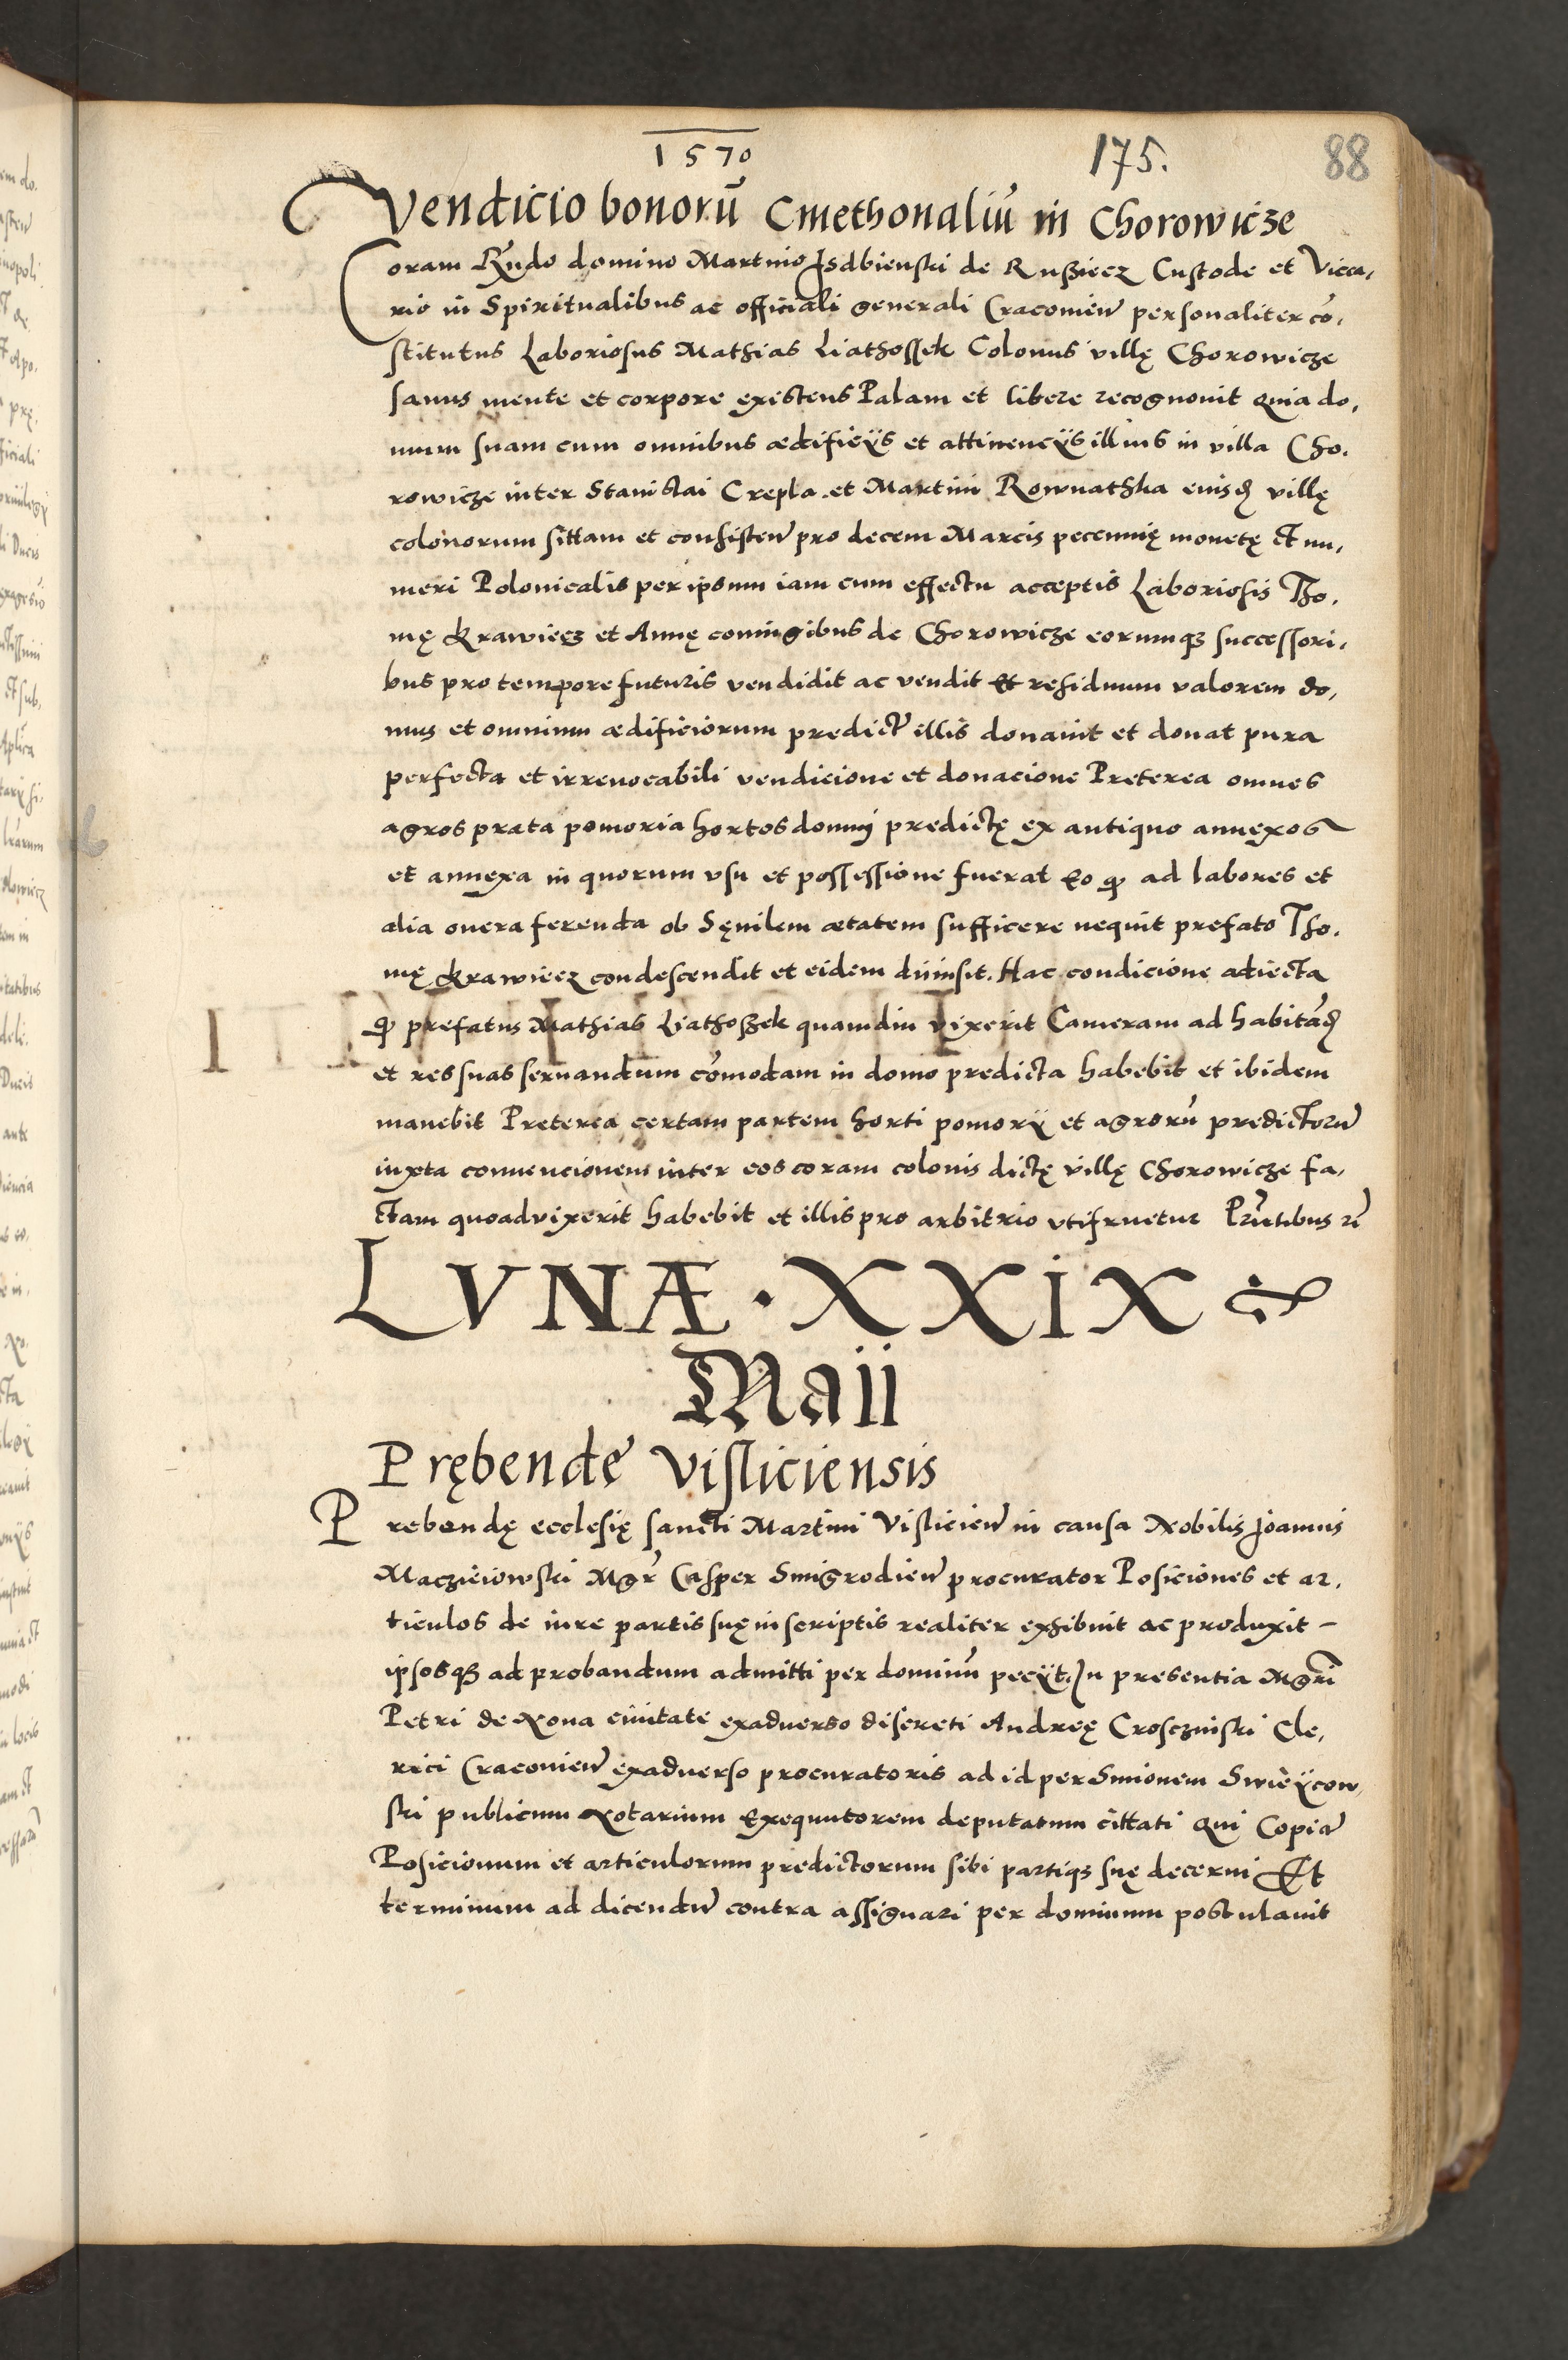 1570
175. 88
Vendicio bonorū Cmethonaliū in Chorowicze
Coram Rn̄do domino Martino Jsdbienski de Rußiecz Custode et Vica,
rio in Spiritualibus ac officiali generali Cracouien̄ personaliter cō,
stitutus Laboriosus Mathias Liathossek Colonus villę Chorowicze
sanus mente et corpore existens Palam et libere recognouit quia do,
mum suam cum omnibus ædificÿs et attinencÿs illius in villa Cho,
rowicze inter Stanislai Crepla et Martini Rownathka eiusd̄ villę
colonorum sittam et consisten̄ pro decem Marcis pecunię monetę et nu,
meri Polonicalis per ipsum iam cum effectu acceptis Laboriosis Tho,
mę Krawiecz et Annę coniugibus de Chorowicze eorumqȝ successori,
bus pro tempore futuris vendidit ac vendit et residuum valorem do,
mus et omnium ædificiorum predict̄ illis donauit et donat pura
perfecta et irreuocabili vendicione et donacione Preterea omnes
agros prata pomoria hortos domuj predictę ex antiquo annexos
et annexa in quorum vsu et possessione fuerat eo ꝙ ad labores et
alia onera ferenda ob Sęnilem ætatem sufficere nequit prefato Tho,
mę Krawiecz condescendit et eidem dimisit. Hac condicione adiecta
ꝙ prefatus Mathias Liathoßek quamdiu vixerit Cameram ad habitād̄
et res suas seruandum cōmodam in domo predicta habebit et ibidem
manebit Preterea certam partem horti pomorÿ et agrorū predictorū
iuxta conuencionem inter eos coram colonis dictę villę Chorowicze fa,
ctam quoadvixerit habebit et illis pro arbitrio vtifruetur Pr̄ntibus
LVNÆ · XXIX
Maii
Prębende Visliciensis
Prebendę ecclesię sancti Martini Vislicien̄ in causa Nobilis Joannis
Macziéiowski Mgr̄ Casper Smigrodien̄ procurator Posiciones et ar,
ticulos de iure partis suę in scriptis realiter exhibuit ac produxit –
ipsosqȝ ad probandum admitti per dominū pecÿt. In presentia Mgrī
Petri de Noua ciuitate exaduerso discreti Andreę Crosczinski Cle,
rici Cracouien̄ exaduerso procuratoris ad id per Simonem Swieÿcow,
ski publicum Notarium Exequutorem deputatum cittati Qui Copiā
Posicionum et articulorum predictorum sibi partiqȝ suę decerni Et
terminum ad dicendū contra assignari per dominum postulauit